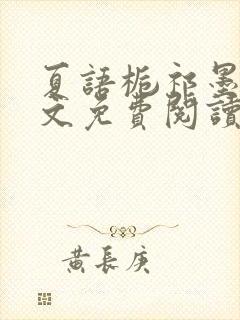 夏語梔祁墨
文免費閱讀
黃長庚